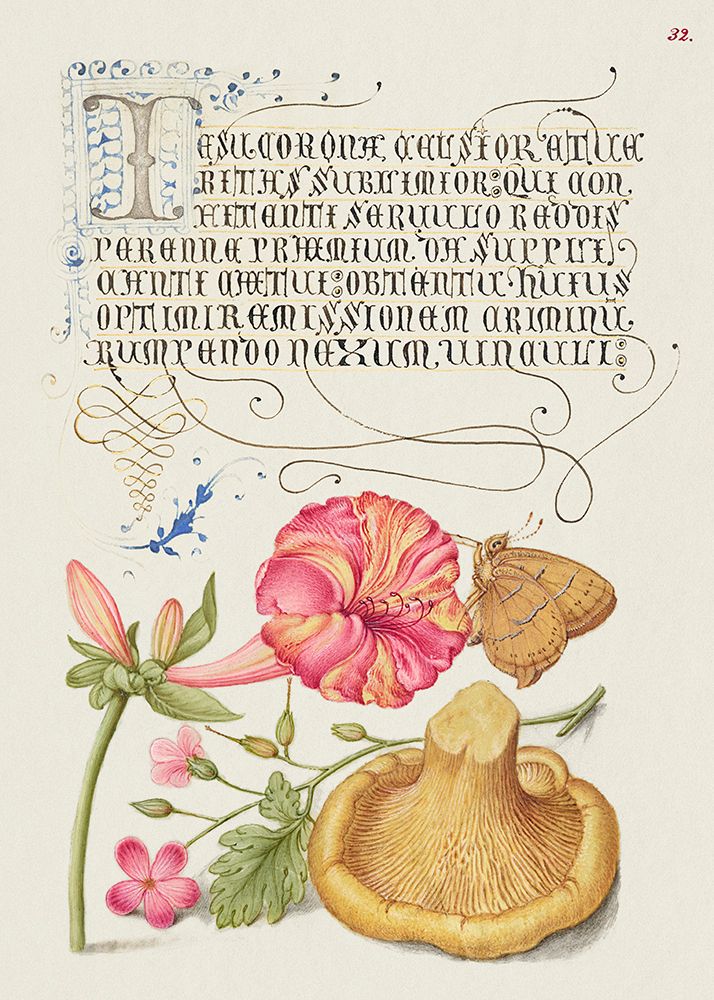 32.
IESU CORONA CELSIOR ET VE
RITAS SUBLIMIOR: QUI CON
FITENTI SERVULO REDDIS
PERENNE PRÆMIUM. DA SUPPLI
CANTI CÆTUI: OBTENTU HUIUS
OPTIMI REMISSIONEM CRIMINU,
RUMPENDO NEXUM VINCULI: